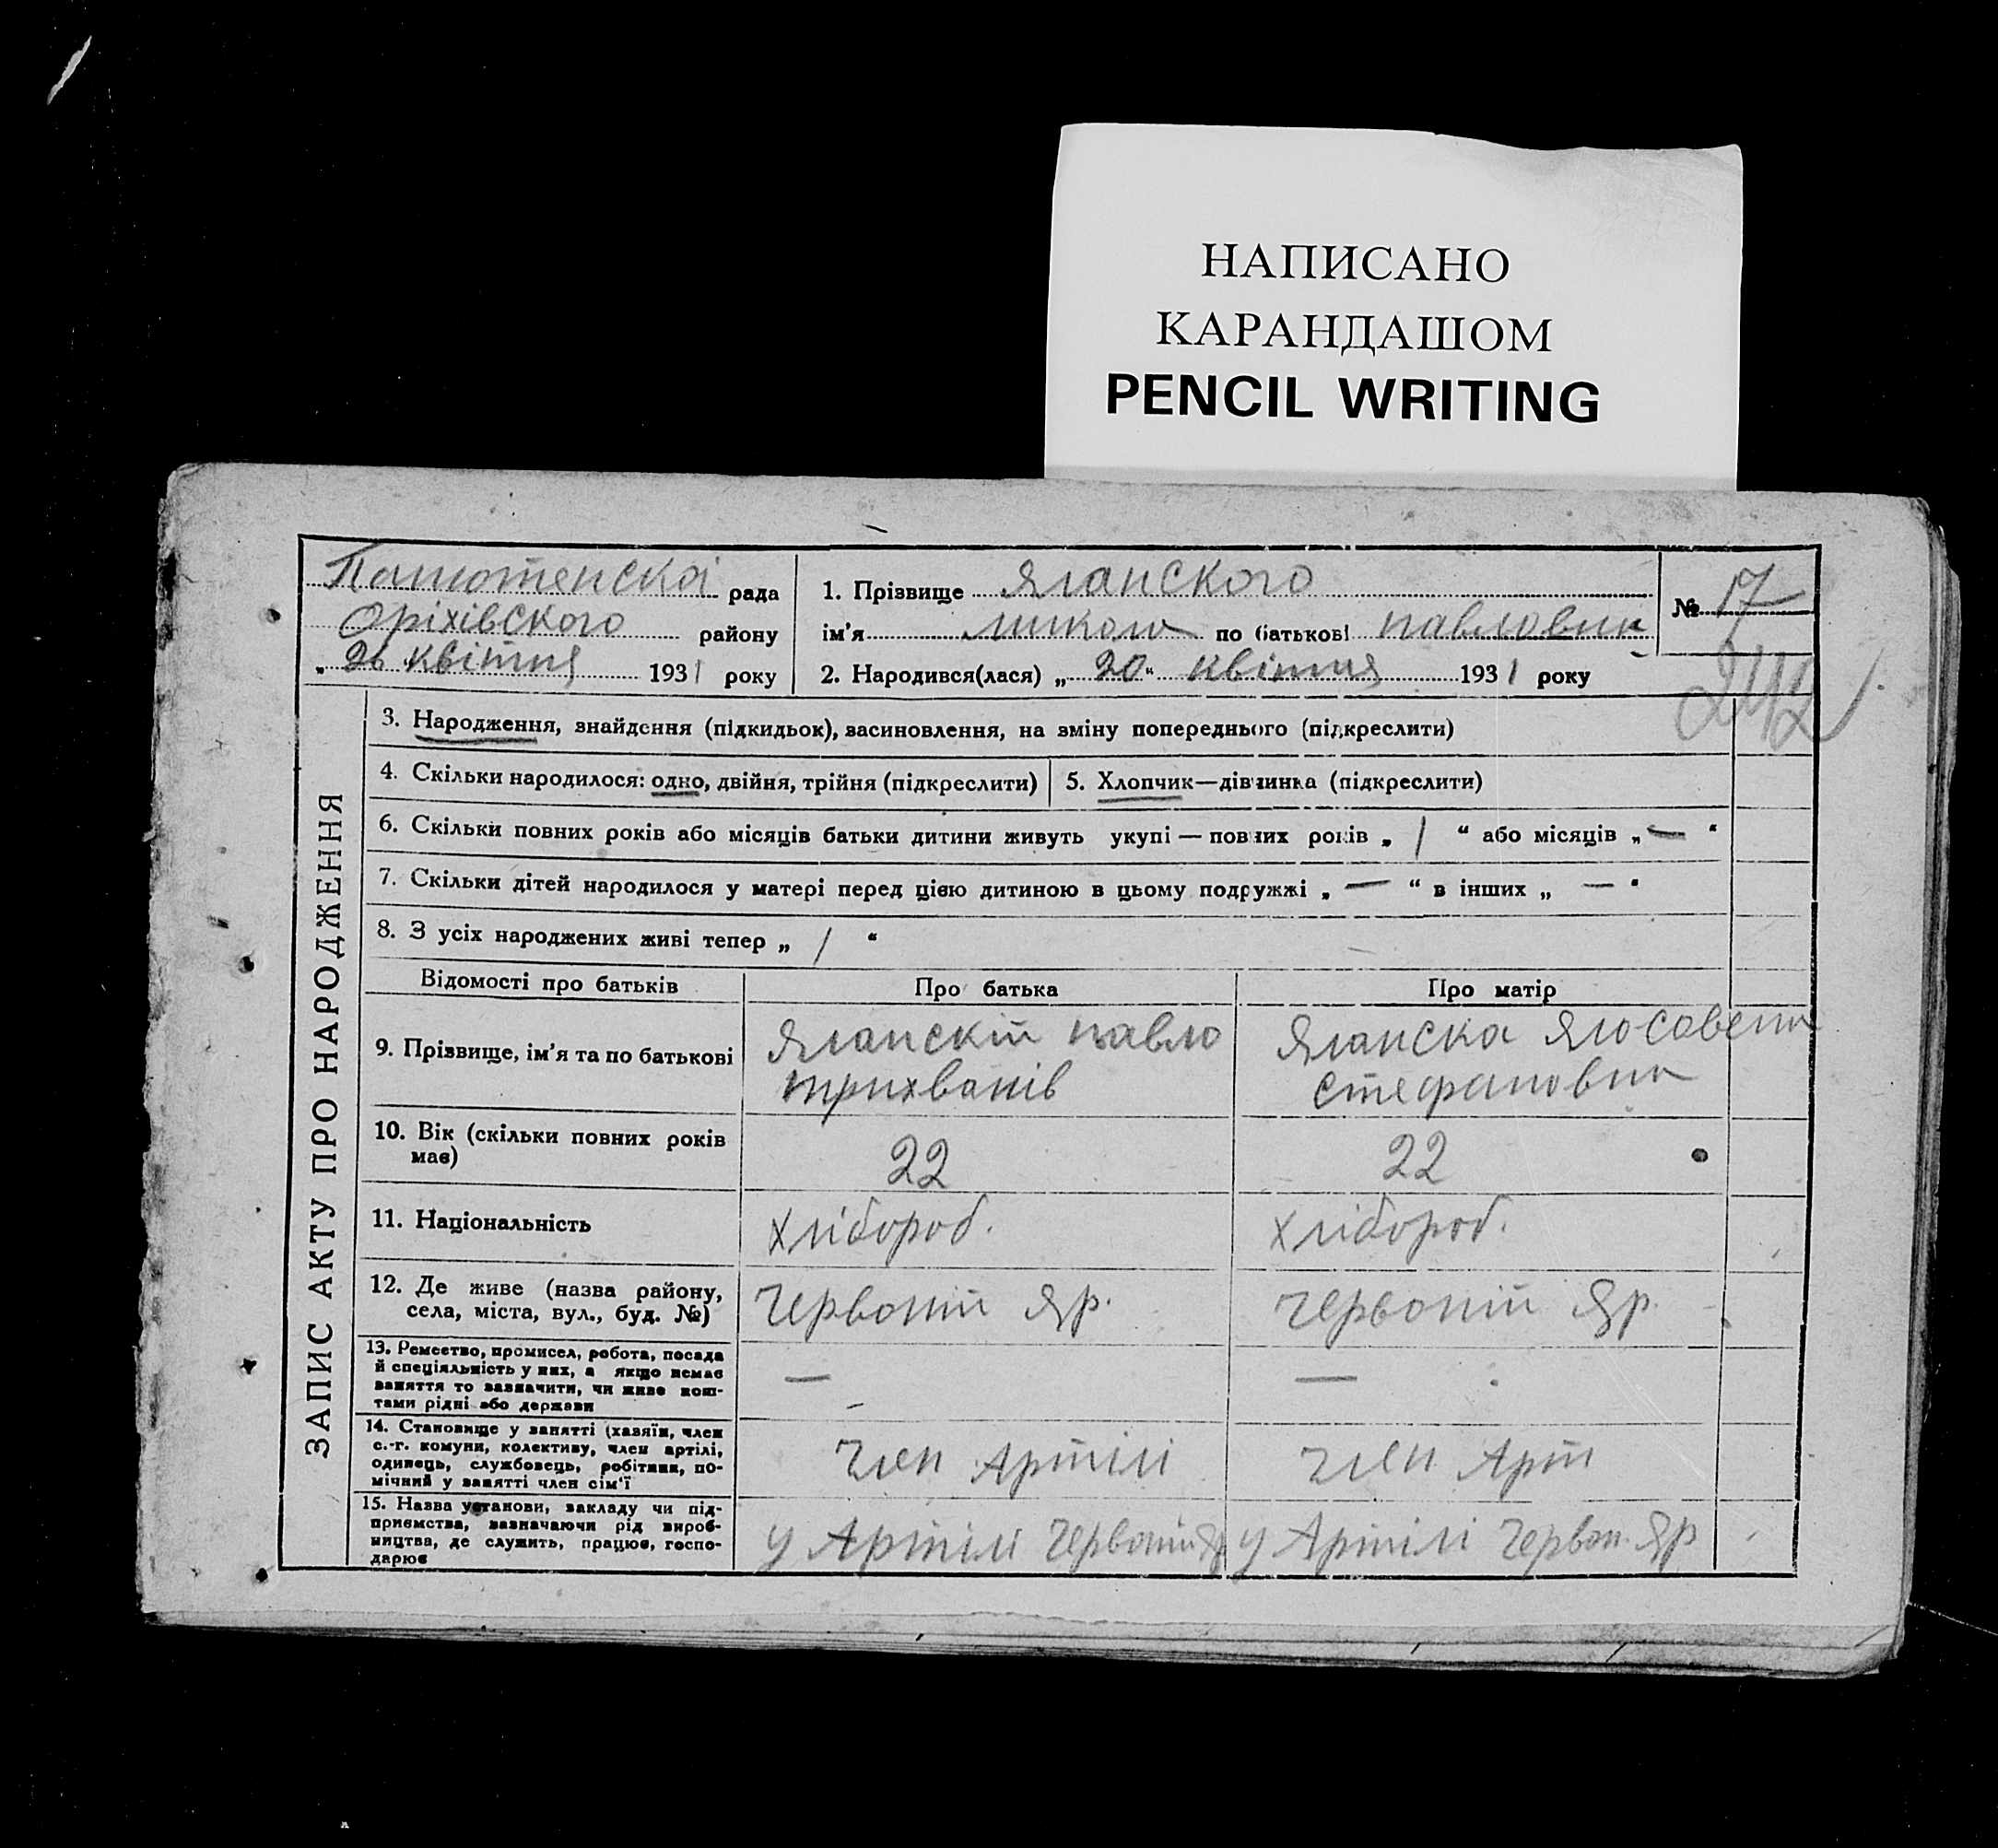 НАПИСАНО
КАРАНДАШОМ
PENCIL WRITING
рада
Оріхівського району
„ 26 квітня 1931 року
1. Прізвище Яланского
ім'я микола по батькові павлович
2. Народився(лася) „ 20 “ квітня 1931 року
№ 17
242
ЗАПИС АКТУ ПРО НАРОДЖЕННЯ
3. Народження, знайдення (підкидьок), засиновлення, на зміну попереднього (підкреслити)
4. Скільки народилося: одно, двійня, трійня (підкреслити)
5. Хлопчик—дівчинка (підкреслити)
6. Скільки повних років або місяців батьки дитини живуть укупі — повних років „ 1 “ або місяців „ — “
7. Скільки дітей народилося у матері перед цією дитиною в цьому подружжі „ — “ в інших „ — “
8. З усіх народжених живі тепер „ 1 “
Відомості про батьків
Про батька
Про матір
9. Прізвище, ім'я та по батькові
Яланскій павло
трихванів
Яланска Ялосавета
стефановна
10. Вік (скільки повних років
має)
22
22
11. Національність
хлібороб.
хлібороб.
12. Де живе (назва району,
села, міста, вул., буд. №)
Червоній Яр.
Червоній Яр.
13. Ремество, промисел, робота, посада
й спеціяльність у них, а якщо немає
заняття то зазначити, чи живе кош-
тами рідні або держави
—
—
14. Становище у занятті (хазяїн, член
с.-г. комуни, колективу, член артілі,
одинець, службовець, робітник, по-
мічний у занятті член сім'ї
Член Артілі
Член Арт
15. Назва установи, закладу чи під-
приємства, зазначаючи рід вироб-
ництва, де служить, працює, госпо-
дарює
у Артілі Червоній Яр
у Артілі Червон. Яр